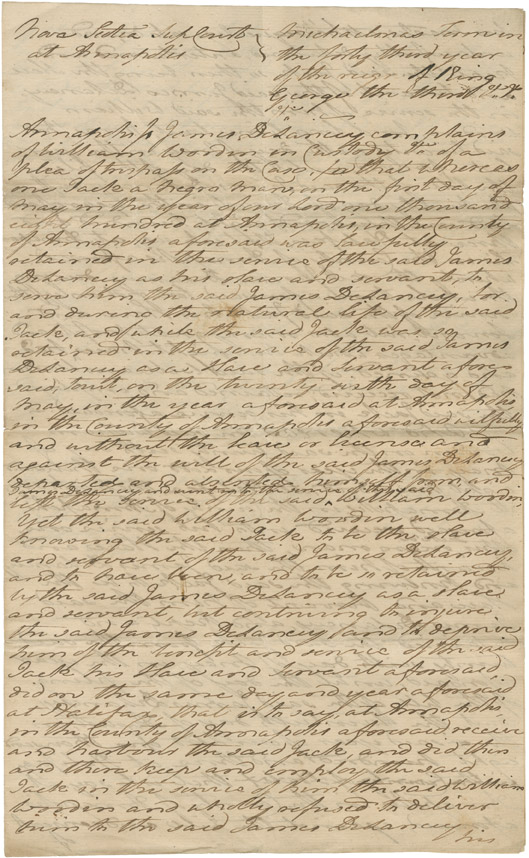 Nova Scotia Sup Court } Michaelmas Term in
at Annapolis the forty third year
of the reign of King
George the third &c.
Annapolis ss James DeLancey complains
of William Woodin in Custody &c of a
plea of trespass on the Case, for that whereas
one Jack a Negro man, on the first day of
may in the year of our Lord one thousand
eight hundred at Annapolis, in the County
of Annapolis aforesaid was lawfully
retained in the service of the said James
DeLancey as his slave and servant, to
serve him the said James DeLancey, for
and during the natural life of the said
Jack, and while the said Jack was so
retained in the service of the said James
DeLancey as a slave and servant afore
said, to wit, on the twenty day of
may, in the year aforesaid at Annapolis
in the County of Annapolis aforesaid wilfully
and without the leave or licence and
against the will of the said James DeLancey
departed and absented himself from and
James DeLancey and went into the service of the said
left the service of the said ^ William Woodin
Yet the said William Woodin well
knowing the said Jack to be the slave
and servant of the said James DeLancey,
and to have been, and to be so retained
by the said James DeLancey as a slave
and servant, but contriving to injure
the said James DeLancey and to deprive
him of the benefit and service of the said
Jack his slave and servant aforesaid
did on the same day and year aforesaid
at Halifax that is to say, at Annapolis
in the County of Annapolis aforesaid, receive
and harbour the said Jack, and did then
and there keep and employ the said
Jack in the service of him the said William
Woodin and wholly refused to deliver
him to the said James DeLancey
his